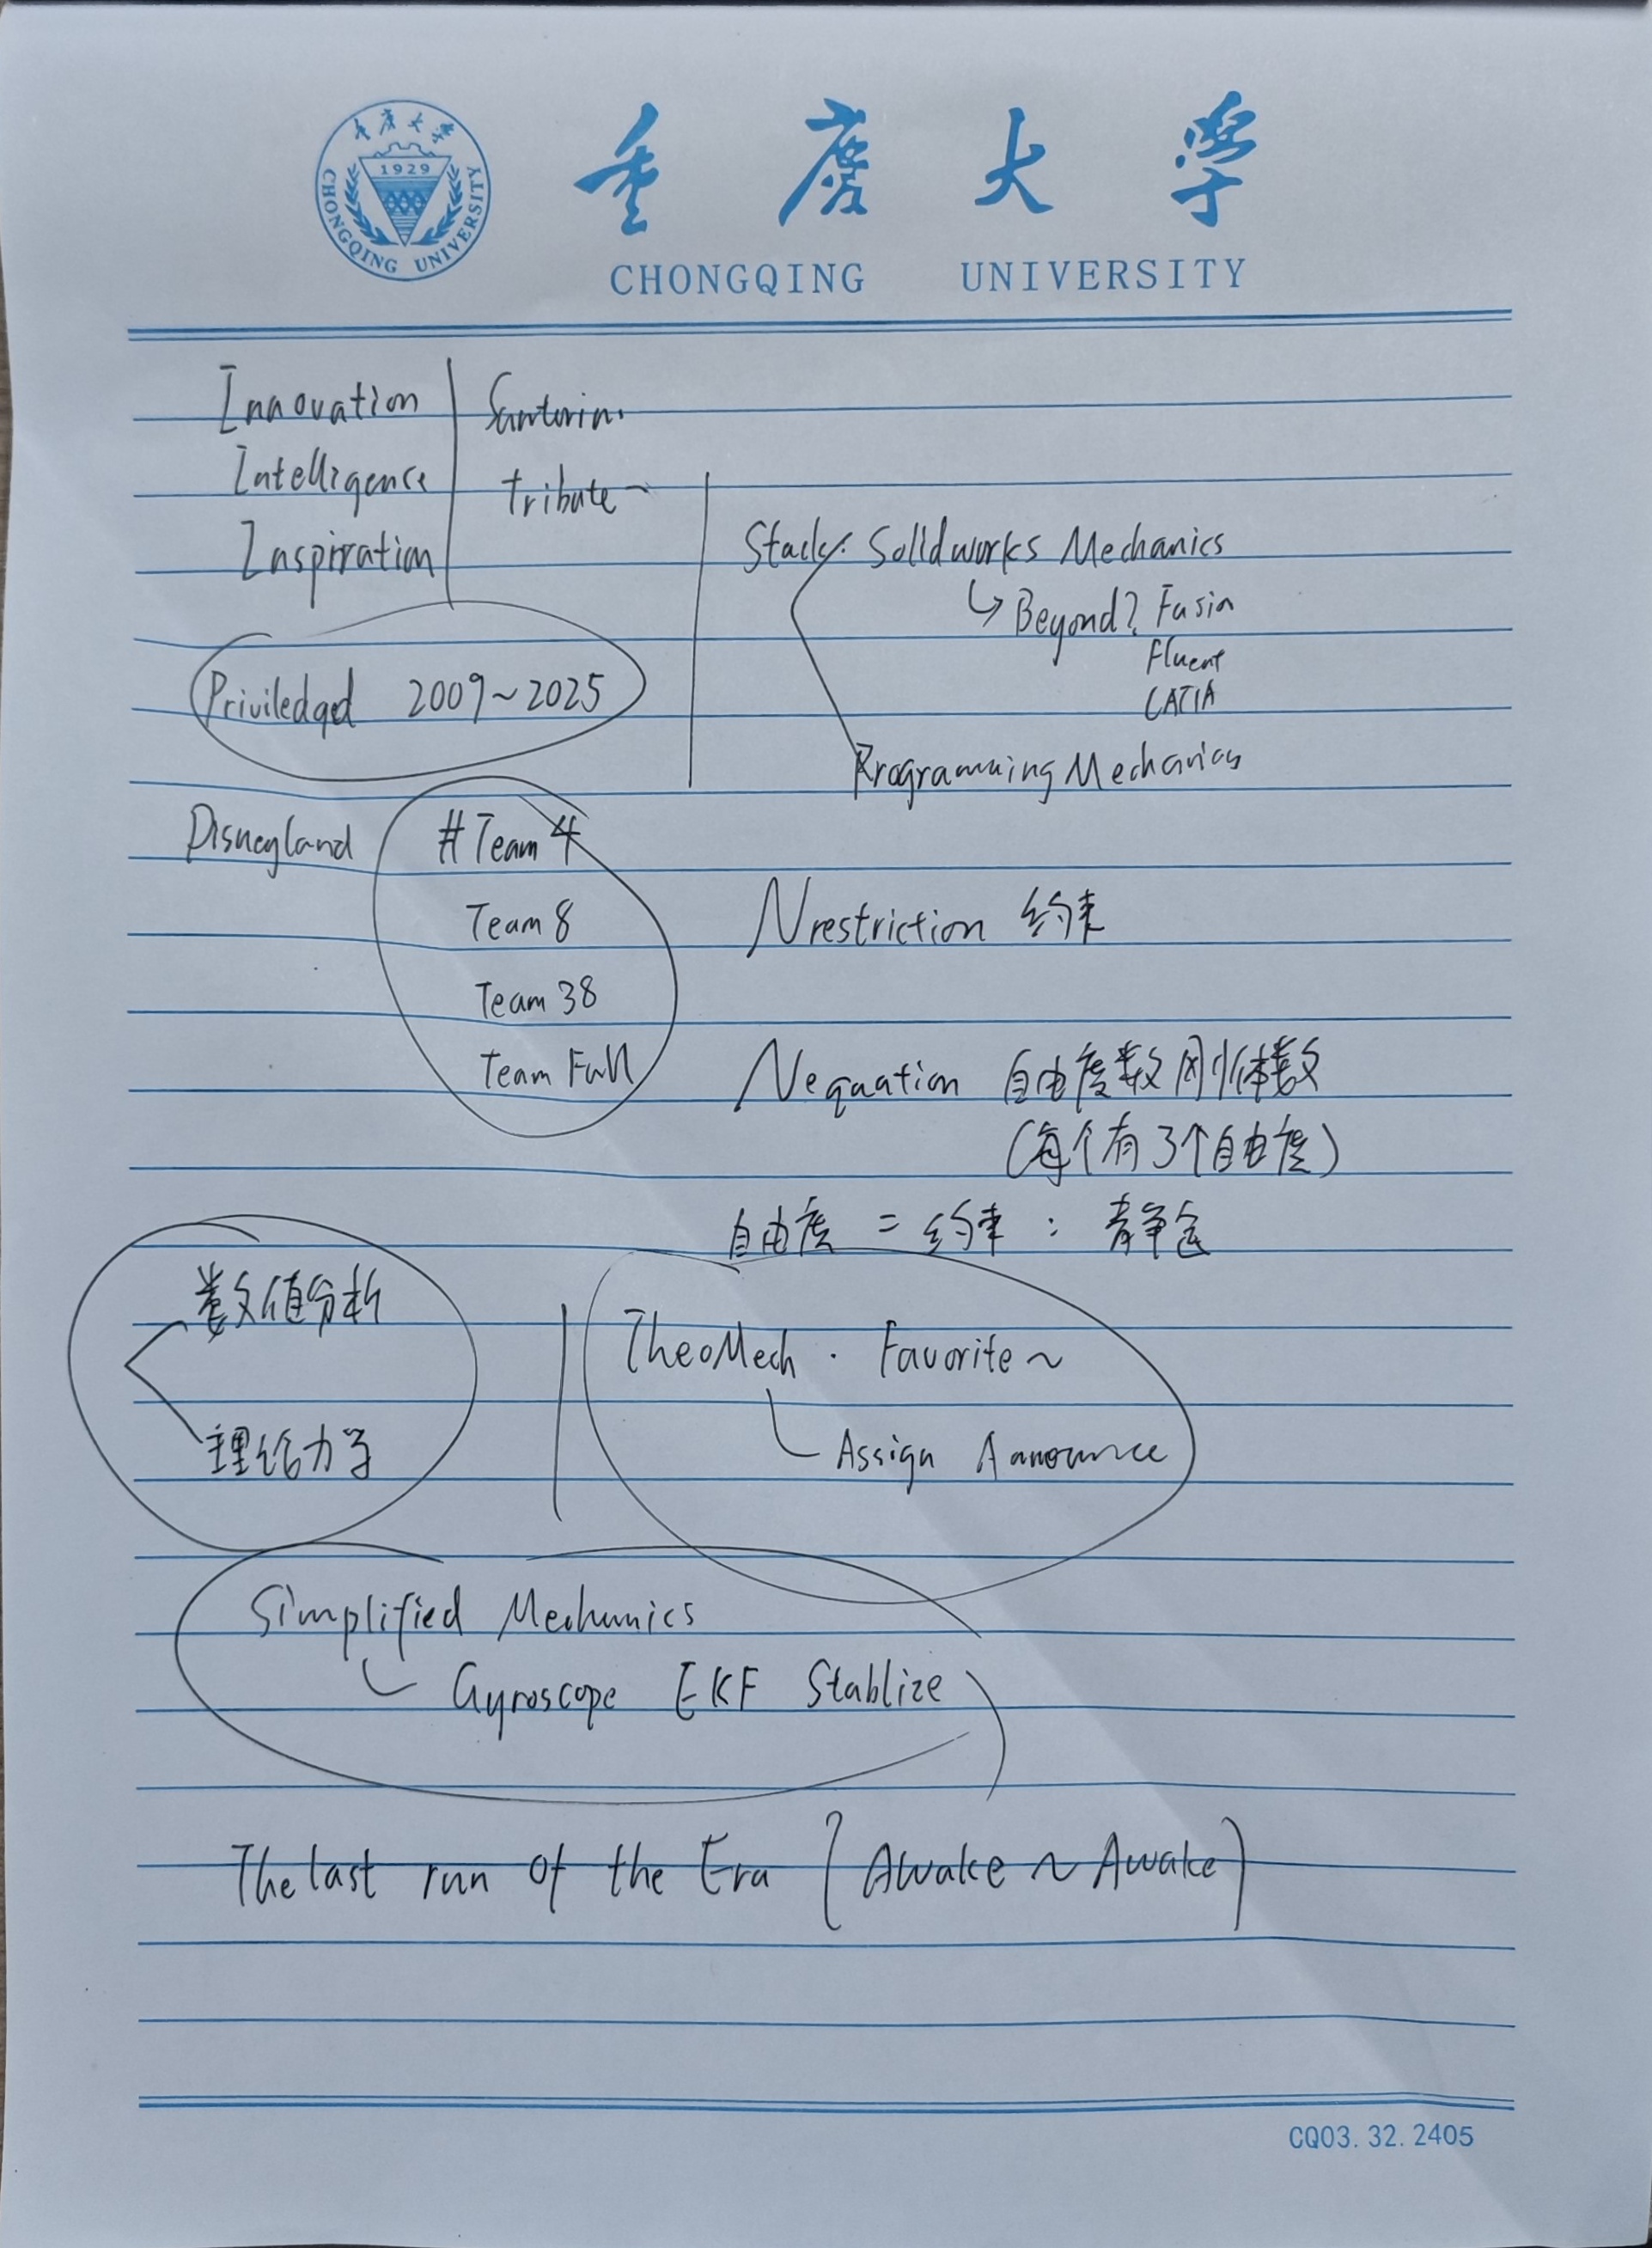 重庆大学
1929
CHONGQING UNIVERSITY
重庆大学
CHONGQING UNIVERSITY
Innovation
Intelligence
Inspiration
Santorini
tribute~
Stack: Solidworks Mechanics
↳ Beyond? Fusion
Fluent
CATIA
Programming Mechanics
Priviledged 2009~2025
Disneyland
#Team 4
Team 8
Team 38
Team Full
Nrestriction 约束
Nequation 自由度数 刚体数
(每个有3个自由度)
自由度 = 约束 : 静定
数值分析
理论力学
TheoMech · Favorite~
Assign Announce
Simplified Mechanics
Gyroscope EKF Stablize
The last run of the Era (Awake ~ Awake)
CQ03.32.2405